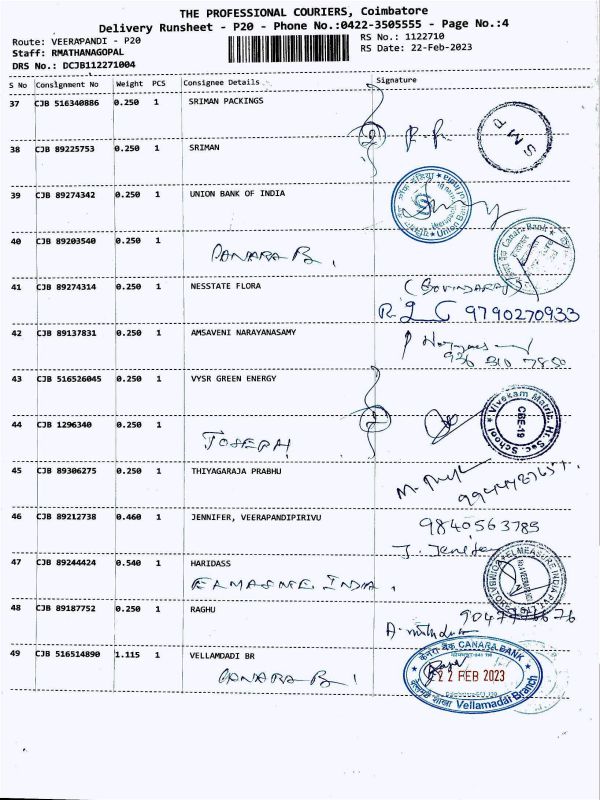 THE PROFESSIONAL COURIERS, Coimbatore
Delivery Runsheet - P20 - Phone No.:0422-3505555 - Page No.:4
Route: VEERAPANDI - P20
RS No.: 1122710
Staff: RMATHANAGOPAL
RS Date: 22-Feb-2023
DRS No.: DCJB112271004
S No Consignment No Weight PCS Consignee Details Signature
37 CJB 516340886 0.250 1 SRIMAN PACKINGS
S M P
38 CJB 89225753 0.250 1 SRIMAN
39 CJB 89274342 0.250 1 UNION BANK OF INDIA
Union Bank
40 CJB 89203540 0.250 1
Canara Bank
CANARA B.
41 CJB 89274314 0.250 1 NESSTATE FLORA
(GOVINDARAJ)
9790270933
42 CJB 89137831 0.250 1 AMSAVENI NARAYANASAMY
43 CJB 516526045 0.250 1 VYSR GREEN ENERGY
Vivekam Matric. Hr. Sec. School
CBE-19
44 CJB 1296340 0.250 1
JOSEPH
45 CJB 89306275 0.250 1 THIYAGARAJA PRABHU
46 CJB 89212738 0.460 1 JENNIFER, VEERAPANDIPIRIVU
9840563785
47 CJB 89244424 0.540 1 HARIDASS
ELMEASURE INDIA PVT
INDIA.
48 CJB 89187752 0.250 1 RAGHU
49 CJB 516514890 1.115 1 VELLAMDADI BR
CANARA B
केनरा बैंक CANARA BANK
22 FEB 2023
Vellamadai Branch